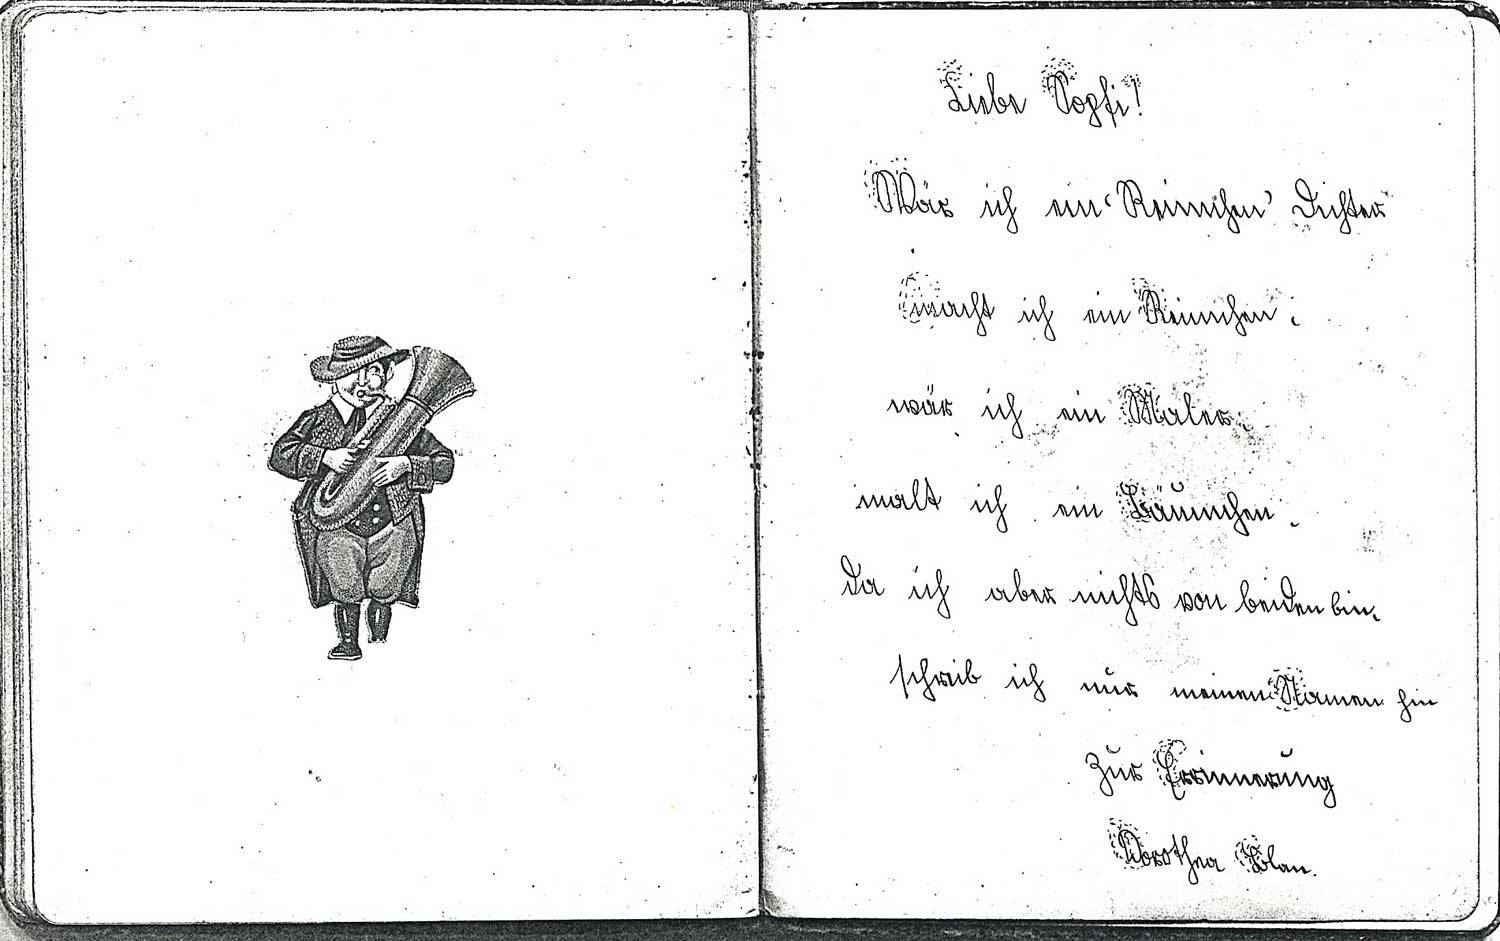 Liebe Sophi!
Wär ich ein 'Reimchen' Dichter
macht ich ein Reimchen.
wär ich ein Maler.
malt ich ein Bäumchen.
Da ich aber nichts von beiden bin,
schreib ich nur meinen Namen hin
Zur Erinnerung
Dorothea